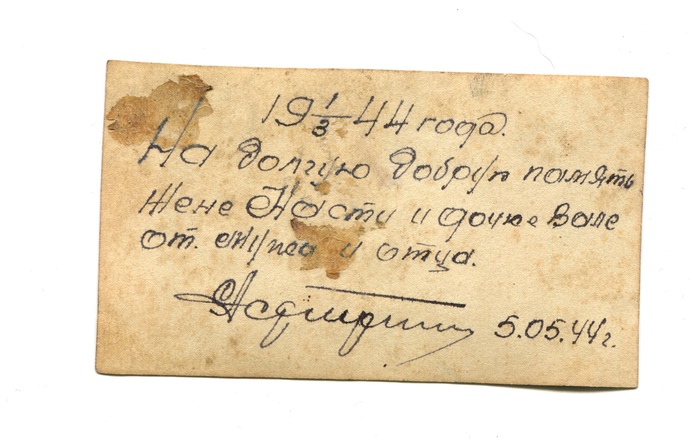 19 1/3 44 года.
На долгую добрую память
жене Насти и дочке Вале
от мужа и отца.
5.05.44 г.